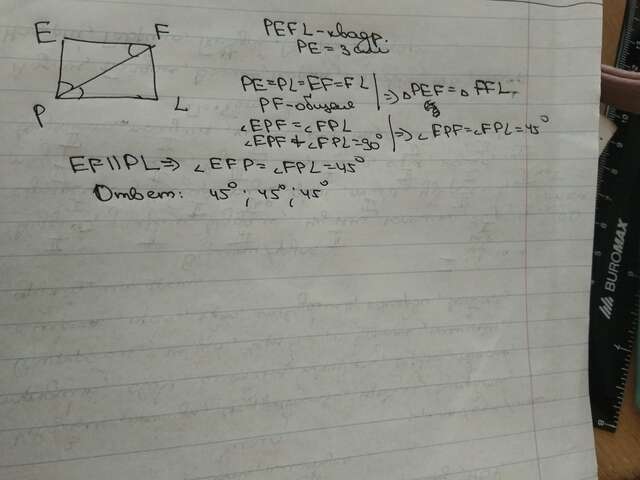 E F
P L
PEFL-квадр.
PE = 3 см
PE=PL=EF=FL | => △PEF = △FFL
PF-общая
∠EPF = ∠FPL | => ∠EPF=∠FPL=45°
∠EPF + ∠FPL=90°
EF || PL => ∠EFP = ∠FPL=45°
Ответ: 45°; 45°; 45°
BUROMAX